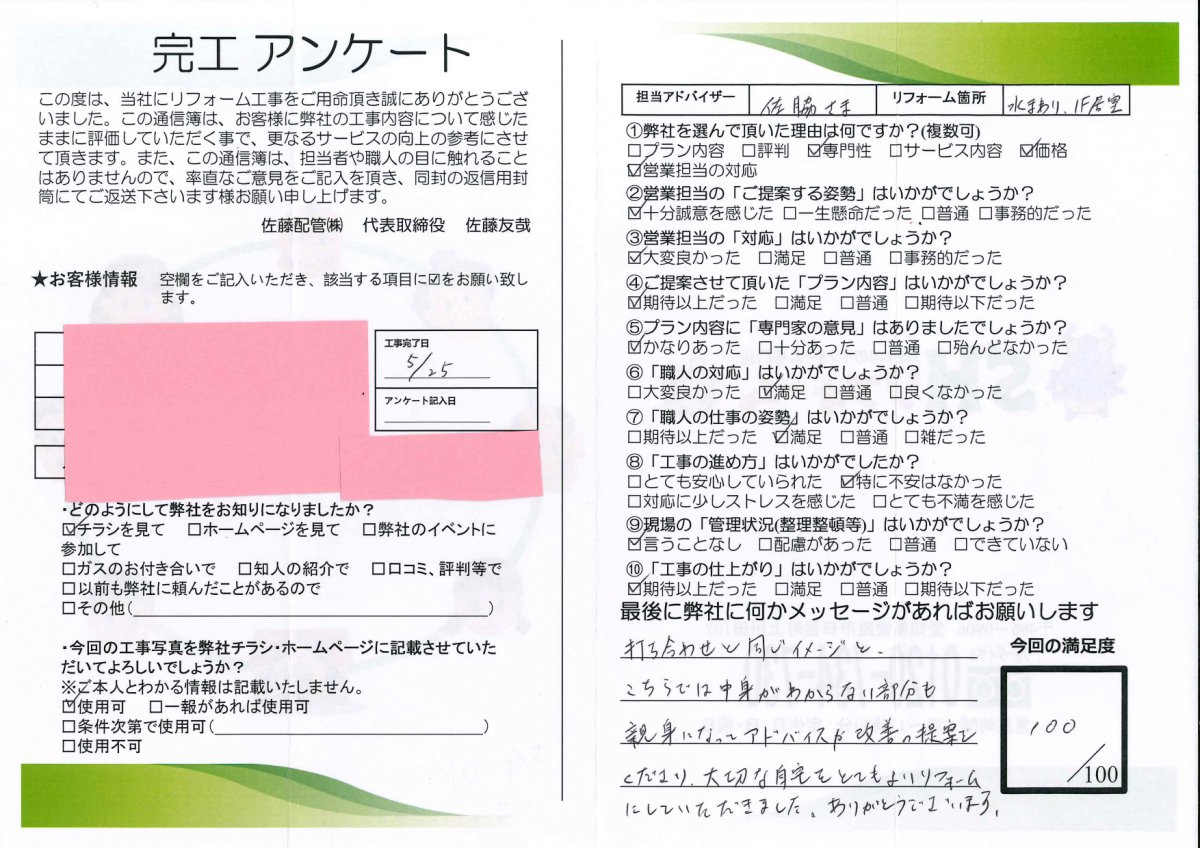 完工 アンケート
この度は、当社にリフォーム工事をご用命頂き誠にありがとうござ
いました。この通信簿は、お客様に弊社の工事内容について感じた
ままに評価していただく事で、更なるサービスの向上の参考にさせ
て頂きます。また、この通信簿は、担当者や職人の目に触れること
はありませんので、率直なご意見をご記入を頂き、同封の返信用封
筒にてご返送下さいます様お願い申し上げます。
佐藤配管㈱ 代表取締役 佐藤友哉
★お客様情報 空欄をご記入いただき、該当する項目に☑をお願い致し
ます。
工事完了日
5/25
アンケート記入日
・どのようにして弊社をお知りになりましたか？
☑チラシを見て □ホームページを見て □弊社のイベントに
参加して
□ガスのお付き合いで □知人の紹介で □口コミ、評判等で
□以前も弊社に頼んだことがあるので
□その他( )
・今回の工事写真を弊社チラシ・ホームページに記載させていた
だいてよろしいでしょうか？
※ご本人とわかる情報は記載いたしません。
☑使用可 □一報があれば使用可
□条件次第で使用可( )
□使用不可
担当アドバイザー 佐脇さま リフォーム箇所 水まわり、1F居室
①弊社を選んで頂いた理由は何ですか？(複数可)
□プラン内容 □評判 ☑専門性 □サービス内容 ☑価格
☑営業担当の対応
②営業担当の「ご提案する姿勢」はいかがでしょうか？
☑十分誠意を感じた □一生懸命だった □普通 □事務的だった
③営業担当の「対応」はいかがでしょうか？
☑大変良かった □満足 □普通 □事務的だった
④ご提案させて頂いた「プラン内容」はいかがでしょうか？
☑期待以上だった □満足 □普通 □期待以下だった
⑤プラン内容に「専門家の意見」はありましたでしょうか？
☑かなりあった □十分あった □普通 □殆んどなかった
⑥「職人の対応」はいかがでしょうか？
□大変良かった ☑満足 □普通 □良くなかった
⑦「職人の仕事の姿勢」はいかがでしょうか？
□期待以上だった ☑満足 □普通 □雑だった
⑧「工事の進め方」はいかがでしたか？
□とても安心していられた ☑特に不安はなかった
□対応に少しストレスを感じた □とても不満を感じた
⑨現場の「管理状況(整理整頓等)」はいかがでしょうか？
☑言うことなし □配慮があった □普通 □できていない
⑩「工事の仕上がり」はいかがでしょうか？
☑期待以上だった □満足 □普通 □期待以下だった
最後に弊社に何かメッセージがあればお願いします
打ち合わせと同じイメージと、
こちらでは中身がわからない部分も
親身になってアドバイスや改善の提案を
くださり、大切な自宅をとてもよいリフォーム
にしていただきました。ありがとうございます。
今回の満足度
100
/100